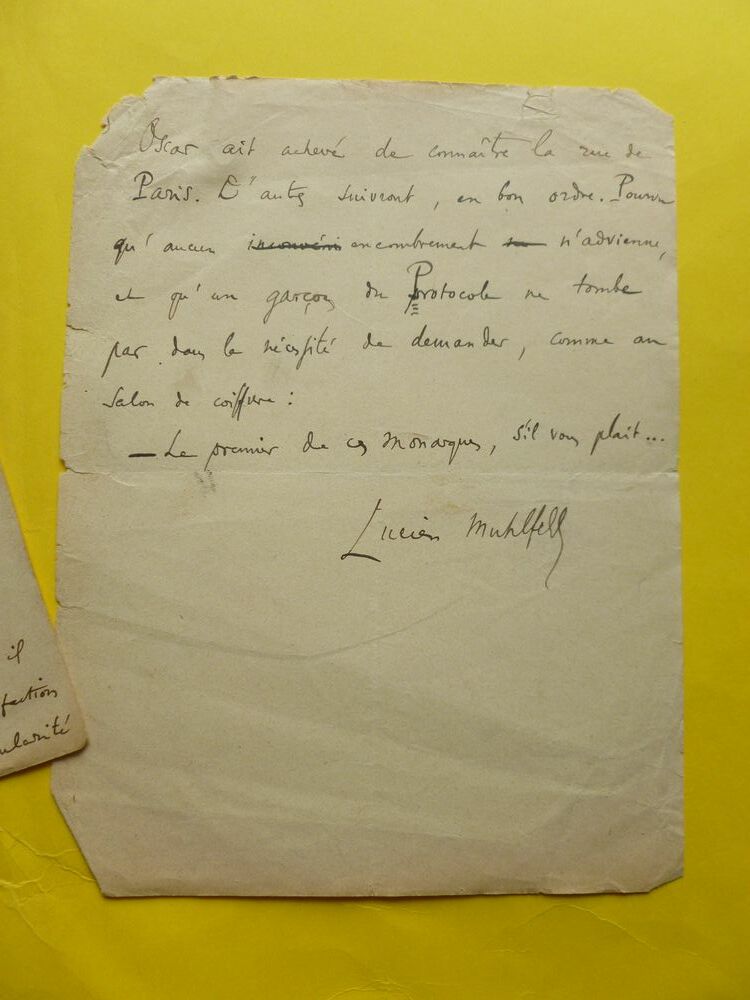 Oscar ait achevé de connaître la rue de
Paris. D'autres suivront, en bon ordre. Pourvu
qu'aucun inconvéni encombrement n'advienne,
et qu'un garçon du Protocole ne tombe
pas dans la nécessité de demander, comme au
salon de coiffure :
— Le premier de ces monarques, s'il vous plait...
Lucien Muhlfeld
il
fection
ularité